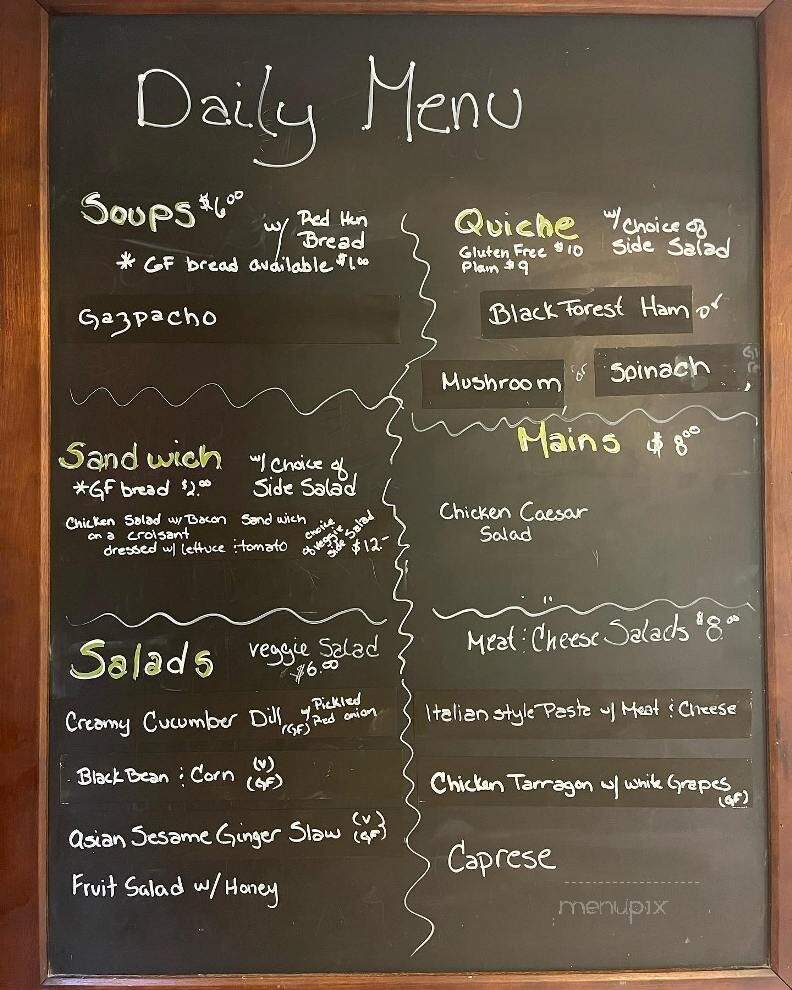 Daily Menu
Soups $6.00
w/ Red Hen
Bread
* GF bread available $1.00
Gazpacho
Quiche w/ Choice of
Side Salad
Gluten Free $10
Plain $9
Black Forest Ham or
Mushroom or Spinach
Sandwich w/ Choice of
*GF bread $2.00 Side Salad
Chicken Salad w/ Bacon Sandwich
on a croisant
dressed w/ lettuce & tomato
choice
of veggie
side Salad
$12-
Mains $8.00
Chicken Caesar
Salad
Salads veggie Salad
$6.00
Creamy Cucumber Dill (GF) w/ Pickled
Red onion
Black Bean & Corn (V)
(GF)
Asian Sesame Ginger Slaw (V)
(GF)
Fruit Salad w/ Honey
Meat & Cheese Salads $8.00
Italian style Pasta w/ Meat & Cheese
Chicken Tarragon w/ white Grapes
(GF)
Caprese
menupix